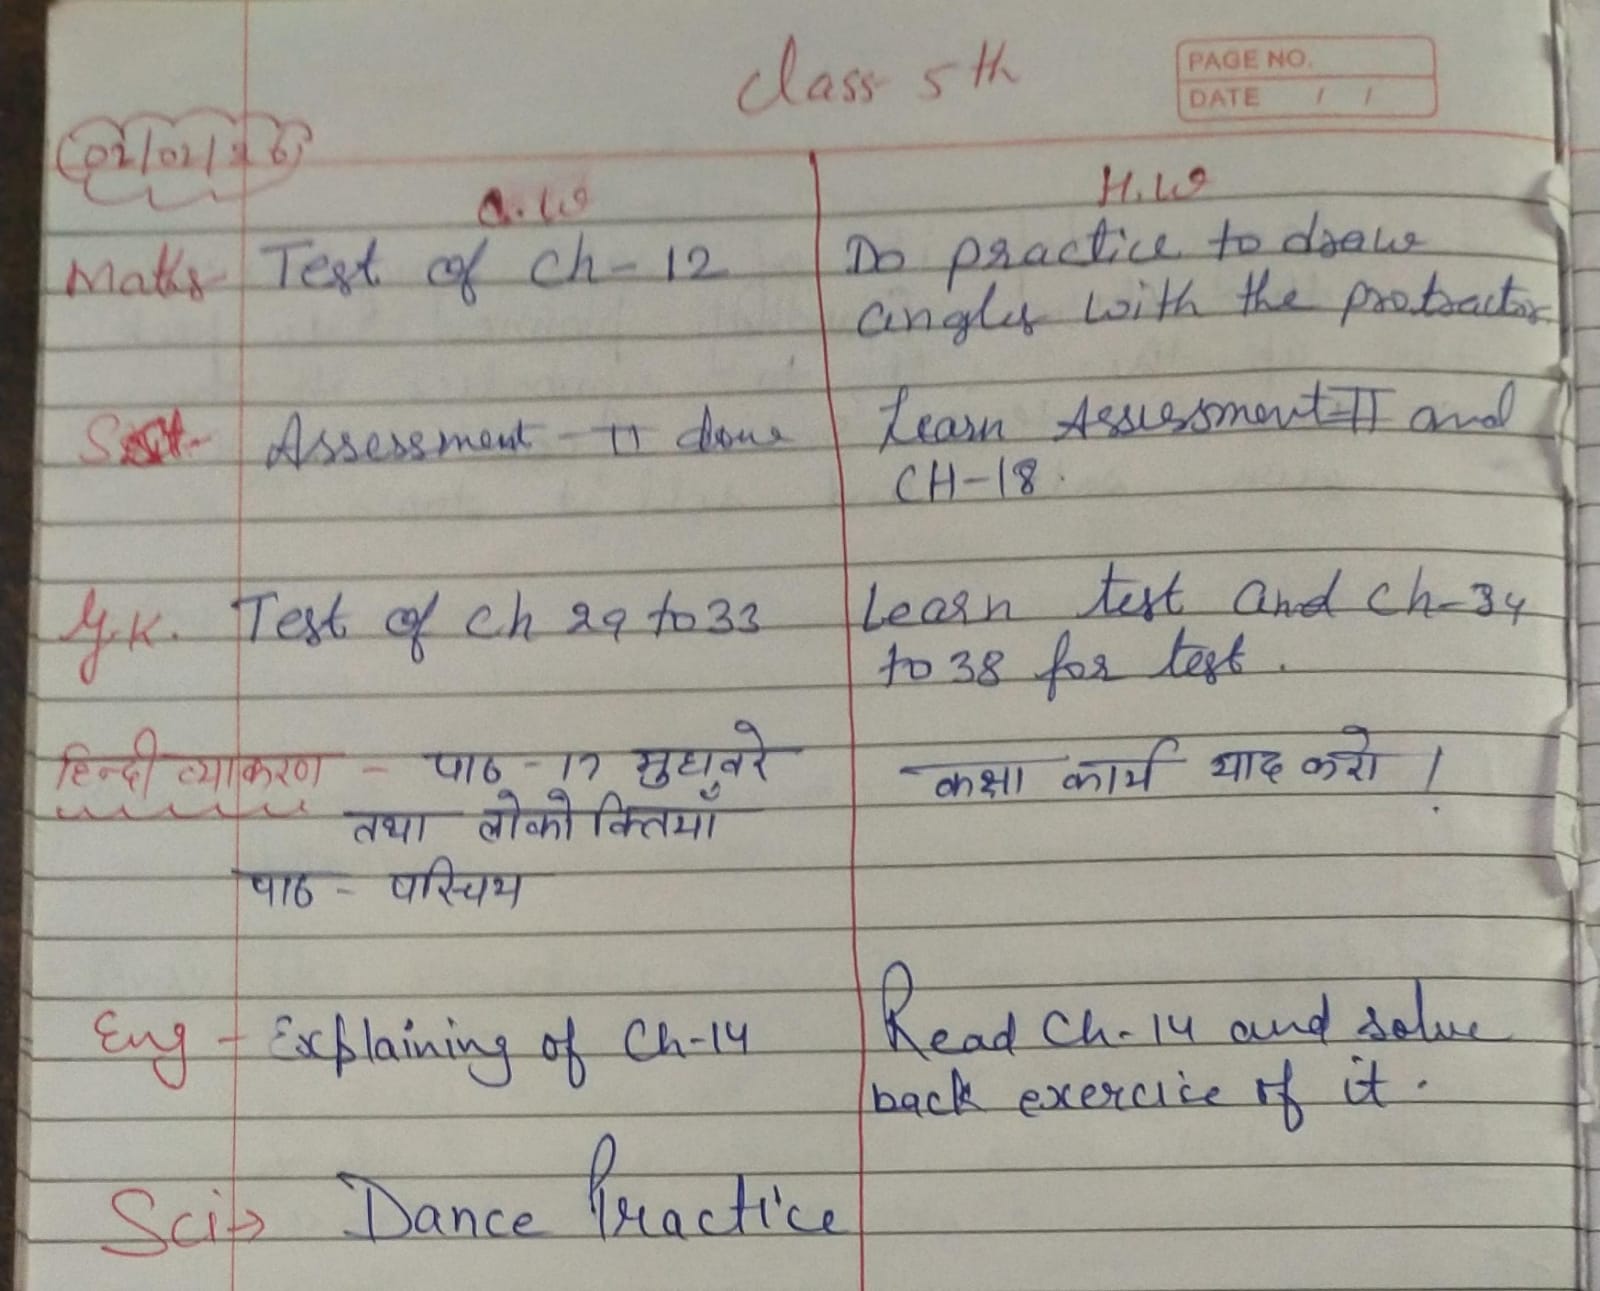 Class 5th
PAGE NO.
DATE / /
02/02/26
C.W
H.W
Maths- Test of Ch-12
Do practice to draw
angles with the protractor
Assessment-II done
Learn Assessment-II and
CH-18.
G.K. Test of Ch 29 to 33
Learn test and Ch-34
to 38 for test.
हिन्दी व्याकरण - पाठ-17 मुहावरे
तथा लोकोक्तियाँ
पाठ - परिचय
कक्षा कार्य याद करो।
Eng - Explaining of Ch-14
Read Ch-14 and solve
back exercise of it.
Sci→ Dance Practice